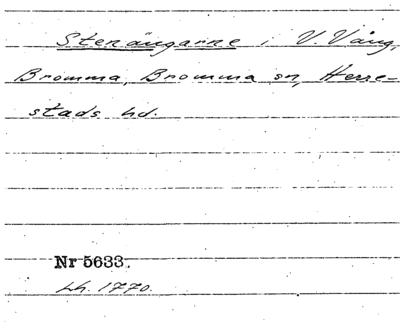 Stenängarne i V. Vång,
Bromma, Bromma sn, Herre-
stads hd.
Nr 5633.
Lh. 1770.